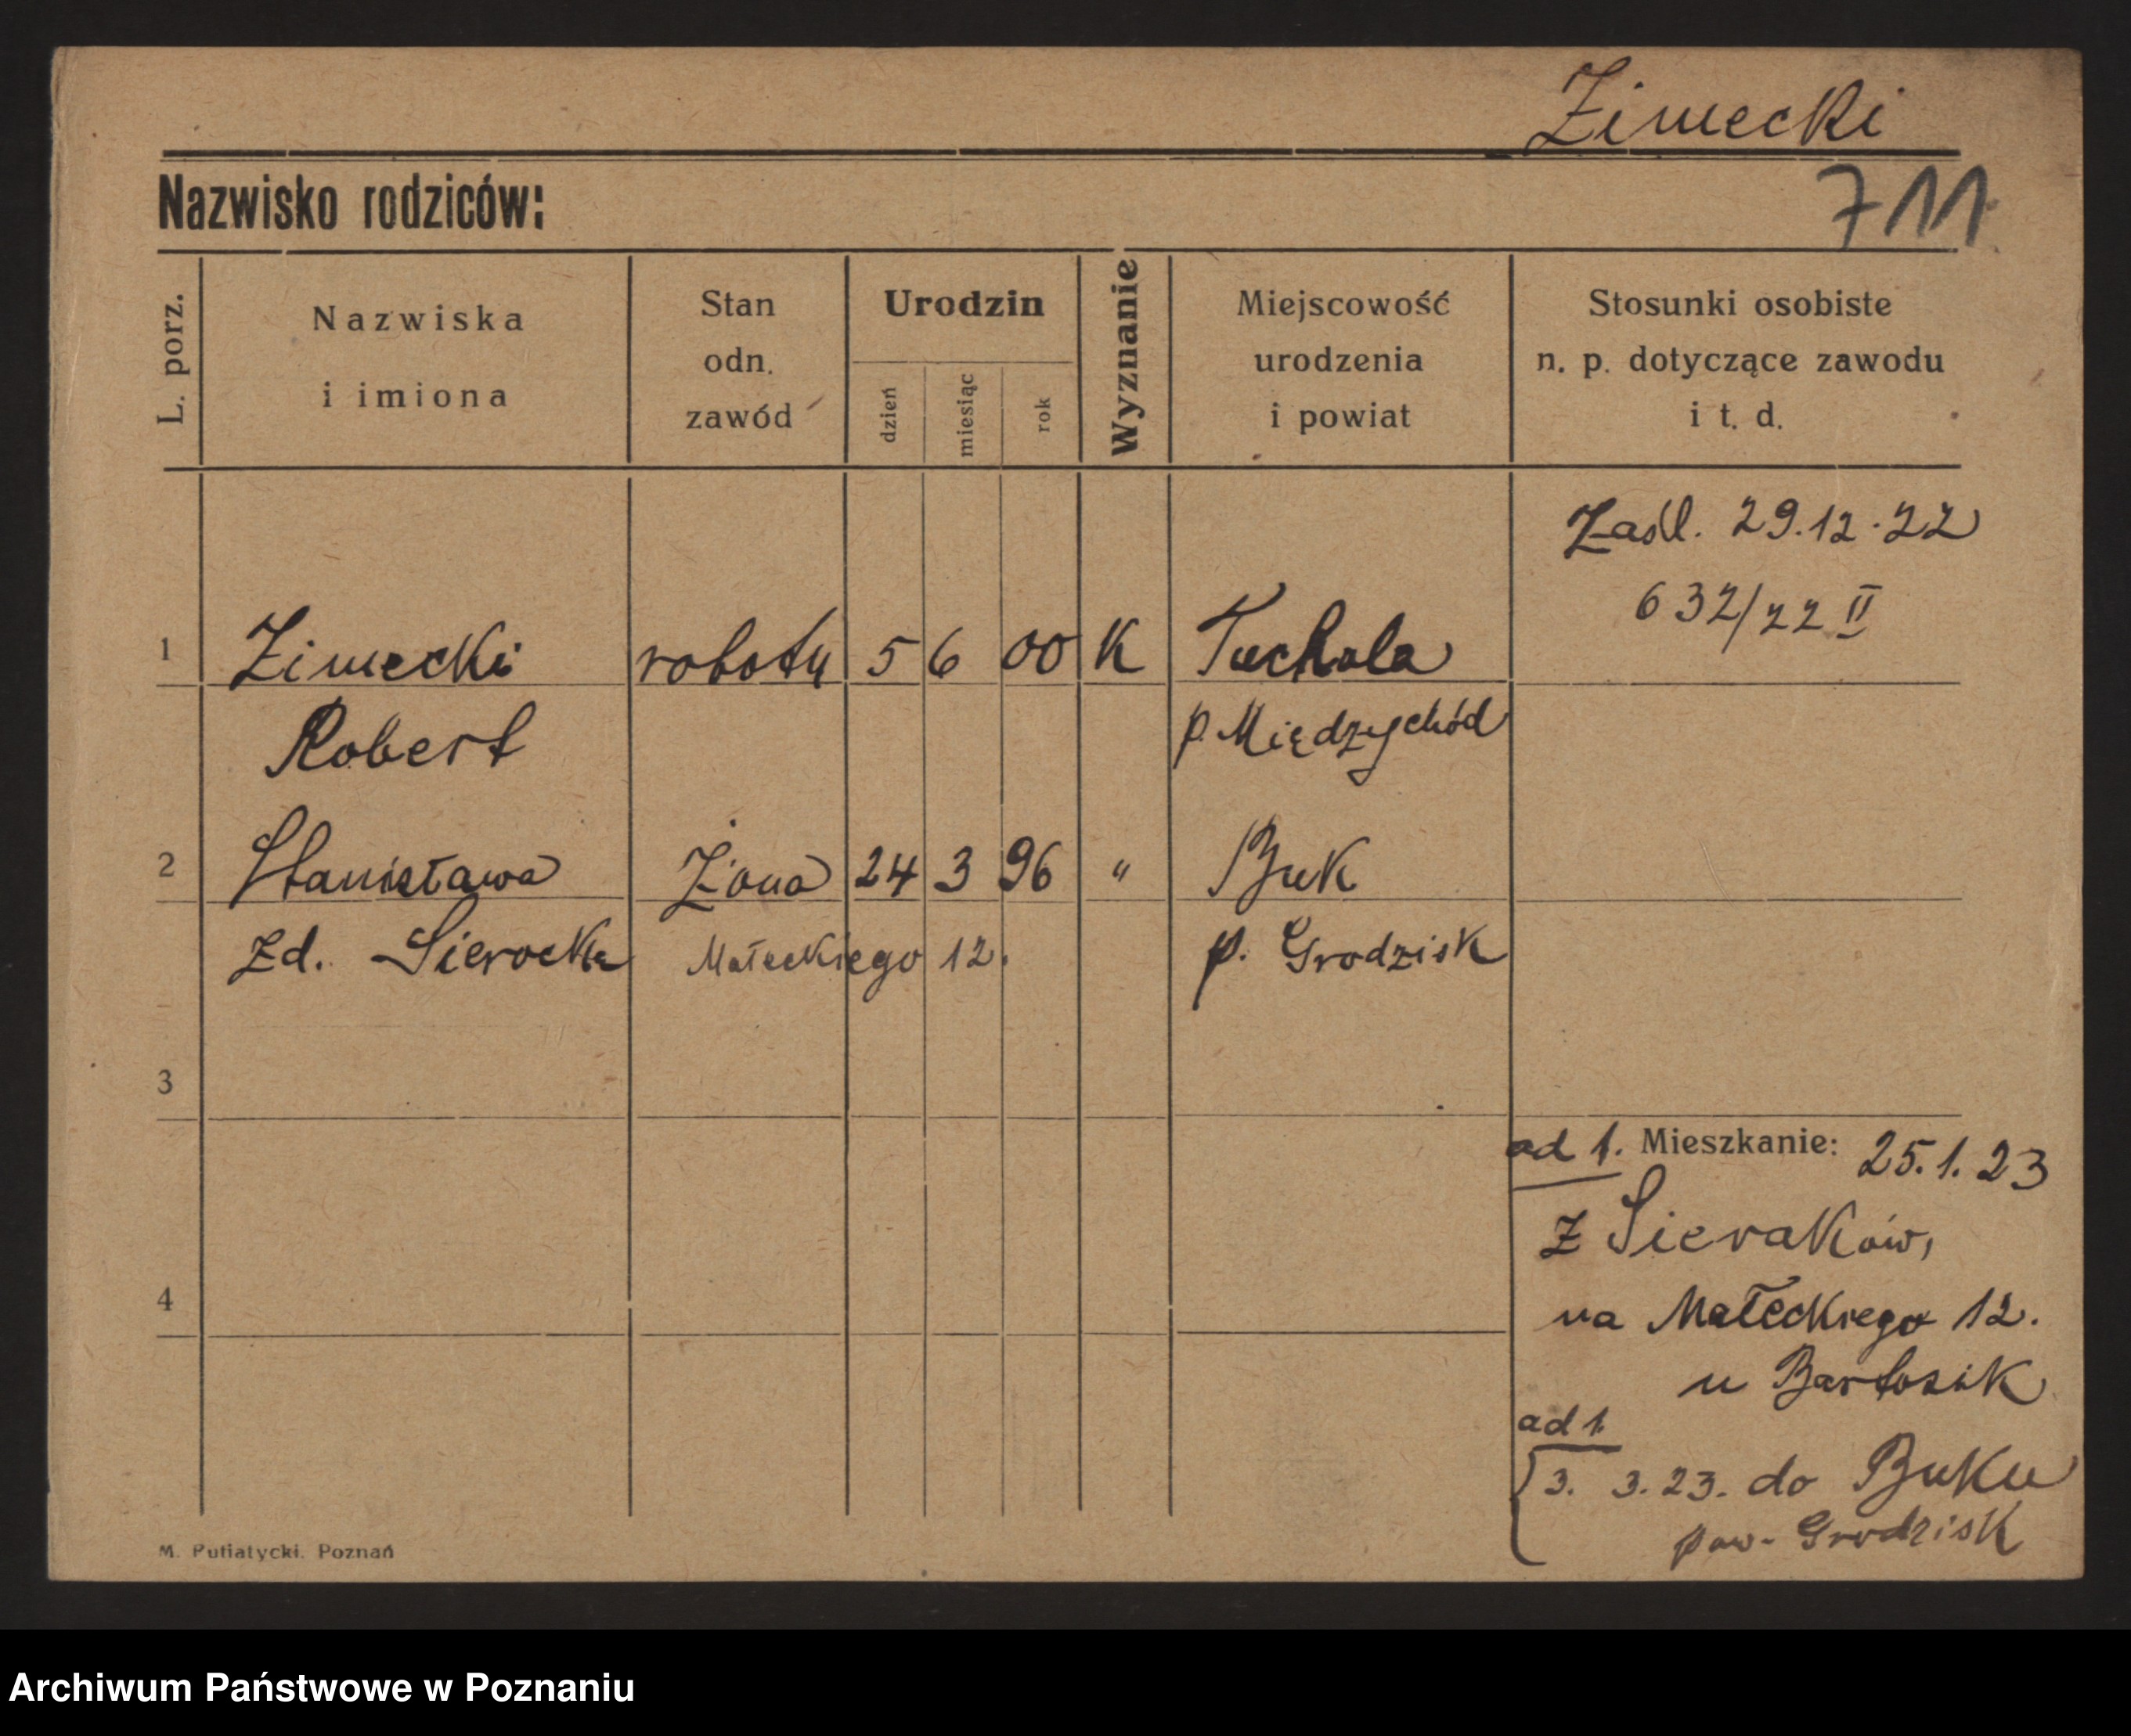 Zimecki
711
Nazwisko rodziców:
L. porz.
Nazwiska
i imiona
Stan
odn.
zawód
Urodzin
dzień
miesiąc
rok
Wyznanie
Miejscowość
urodzenia
i powiat
Stosunki osobiste
n. p. dotyczące zawodu
i t. d.
Zaśl. 29.12.22
632/22 II
1 Zimecki robotn 5 6 00 K Tuchola
Robert p. Międzychód
2 Stanisława Żona 24 3 96 " Buk
Zd. Sierocka Małeckiego 12. p. Grodzisk
3
4
ad 1. Mieszkanie: 25.1.23
z Sieraków,
na Małeckiego 12.
u Bartosik
ad 1.
3. 3.23. do Buku
pow. Grodzisk
M. Putiatycki. Poznań
Archiwum Państwowe w Poznaniu